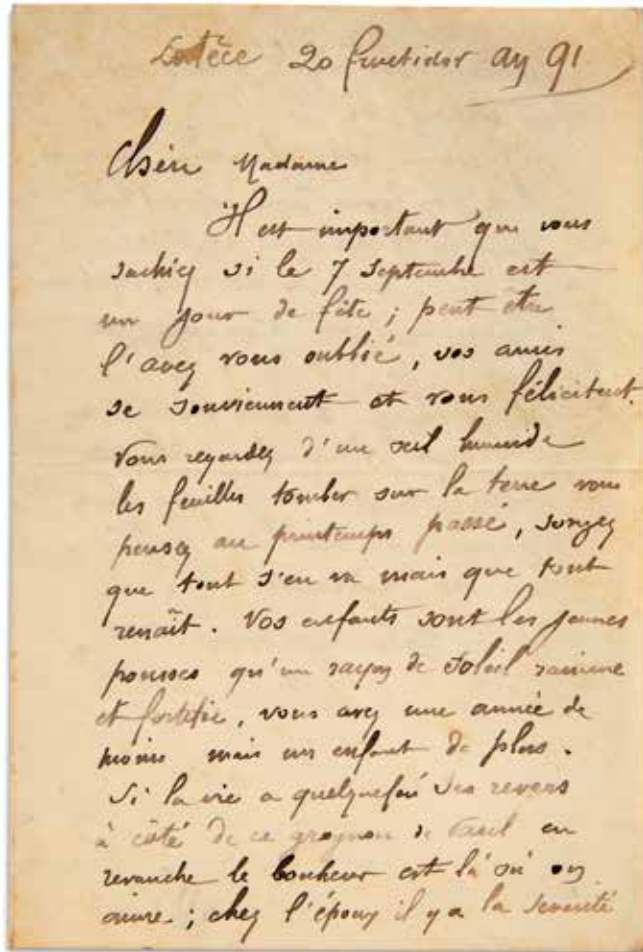 Lutèce 20 fructidor an 91
Chère Madame
Il est important que vous
sachiez si le 7 septembre est
un jour de fête ; peut être
l'avez vous oublié, vos amis
se souviennent et vous félicitent.
Vous regardez d'un œil humide
les feuilles tomber sur la terre vous
pensez au printemps passé, songez
que tout s'en va mais que tout
renaît. Vos enfants sont les jeunes
pousses qu'un rayon de soleil ranime
et fortifie, vous avez une année de
moins mais un enfant de plus.
Si la vie a quelquefois des revers
à côté de ce grognon de Paul en
revanche le bonheur est là où on
aime ; chez l'époux il y a la sévérité